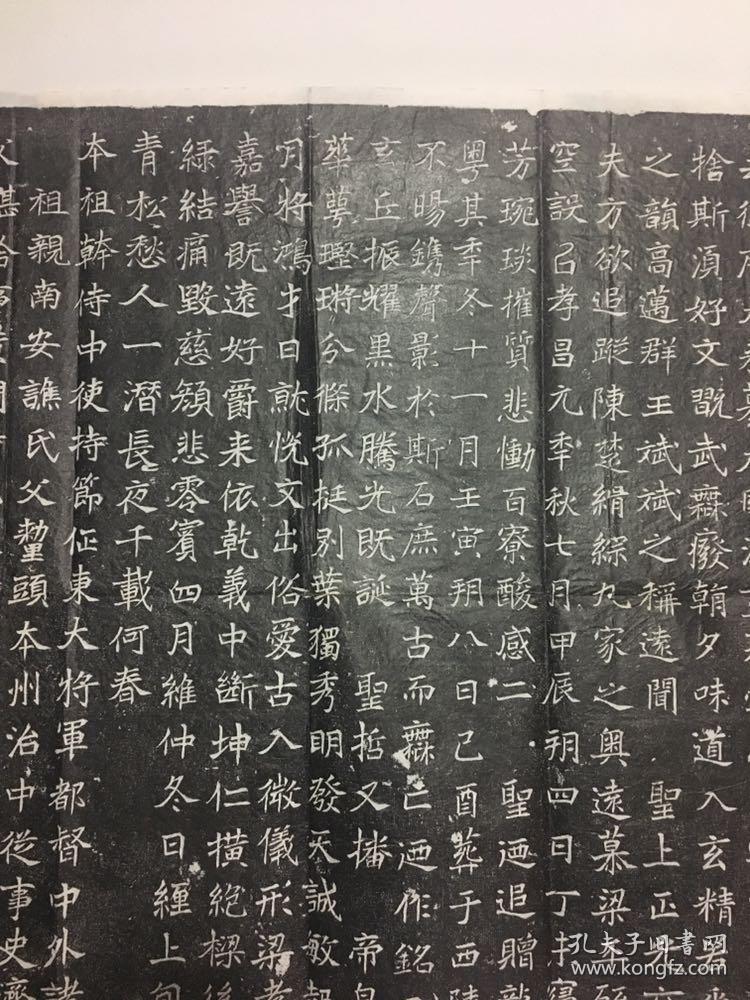 捨斯湏好文翫武橆癈朝夕味道入玄精若
之韻高邁群王斌斌之稱遠聞 聖上正光六
夫方欲追蹤陳楚緝綜九家之奥遠慕梁王
空設以孝昌元年秋七月甲辰朔四日丁
芳琬琰摧質悲慟百寮酸感二 聖迺追贈
粤其年冬十一月壬寅朔八日己酉葬于西陵
不暘鐫聲影於斯石庶萬古而橆亡迺作銘
玄丘振耀黑水騰光既誕 聖哲又播 帝
華萼分條孤挺别葉獨秀明發天誠敏
月將鴻才日就恍文出俗愛古入微儀形梁孝
嘉譽既遠好爵来依乾義中斷坤仁橫絶樛
緑結痛毁慈顔悲零賓四月維仲冬日纏上
青松愁人一潛長夜千載何春
本祖幹侍中使持節征東大將軍都督中外諸
祖親南安譙氏父頭本州治中從事史濟
孔夫子旧書网
www.kongfz.com